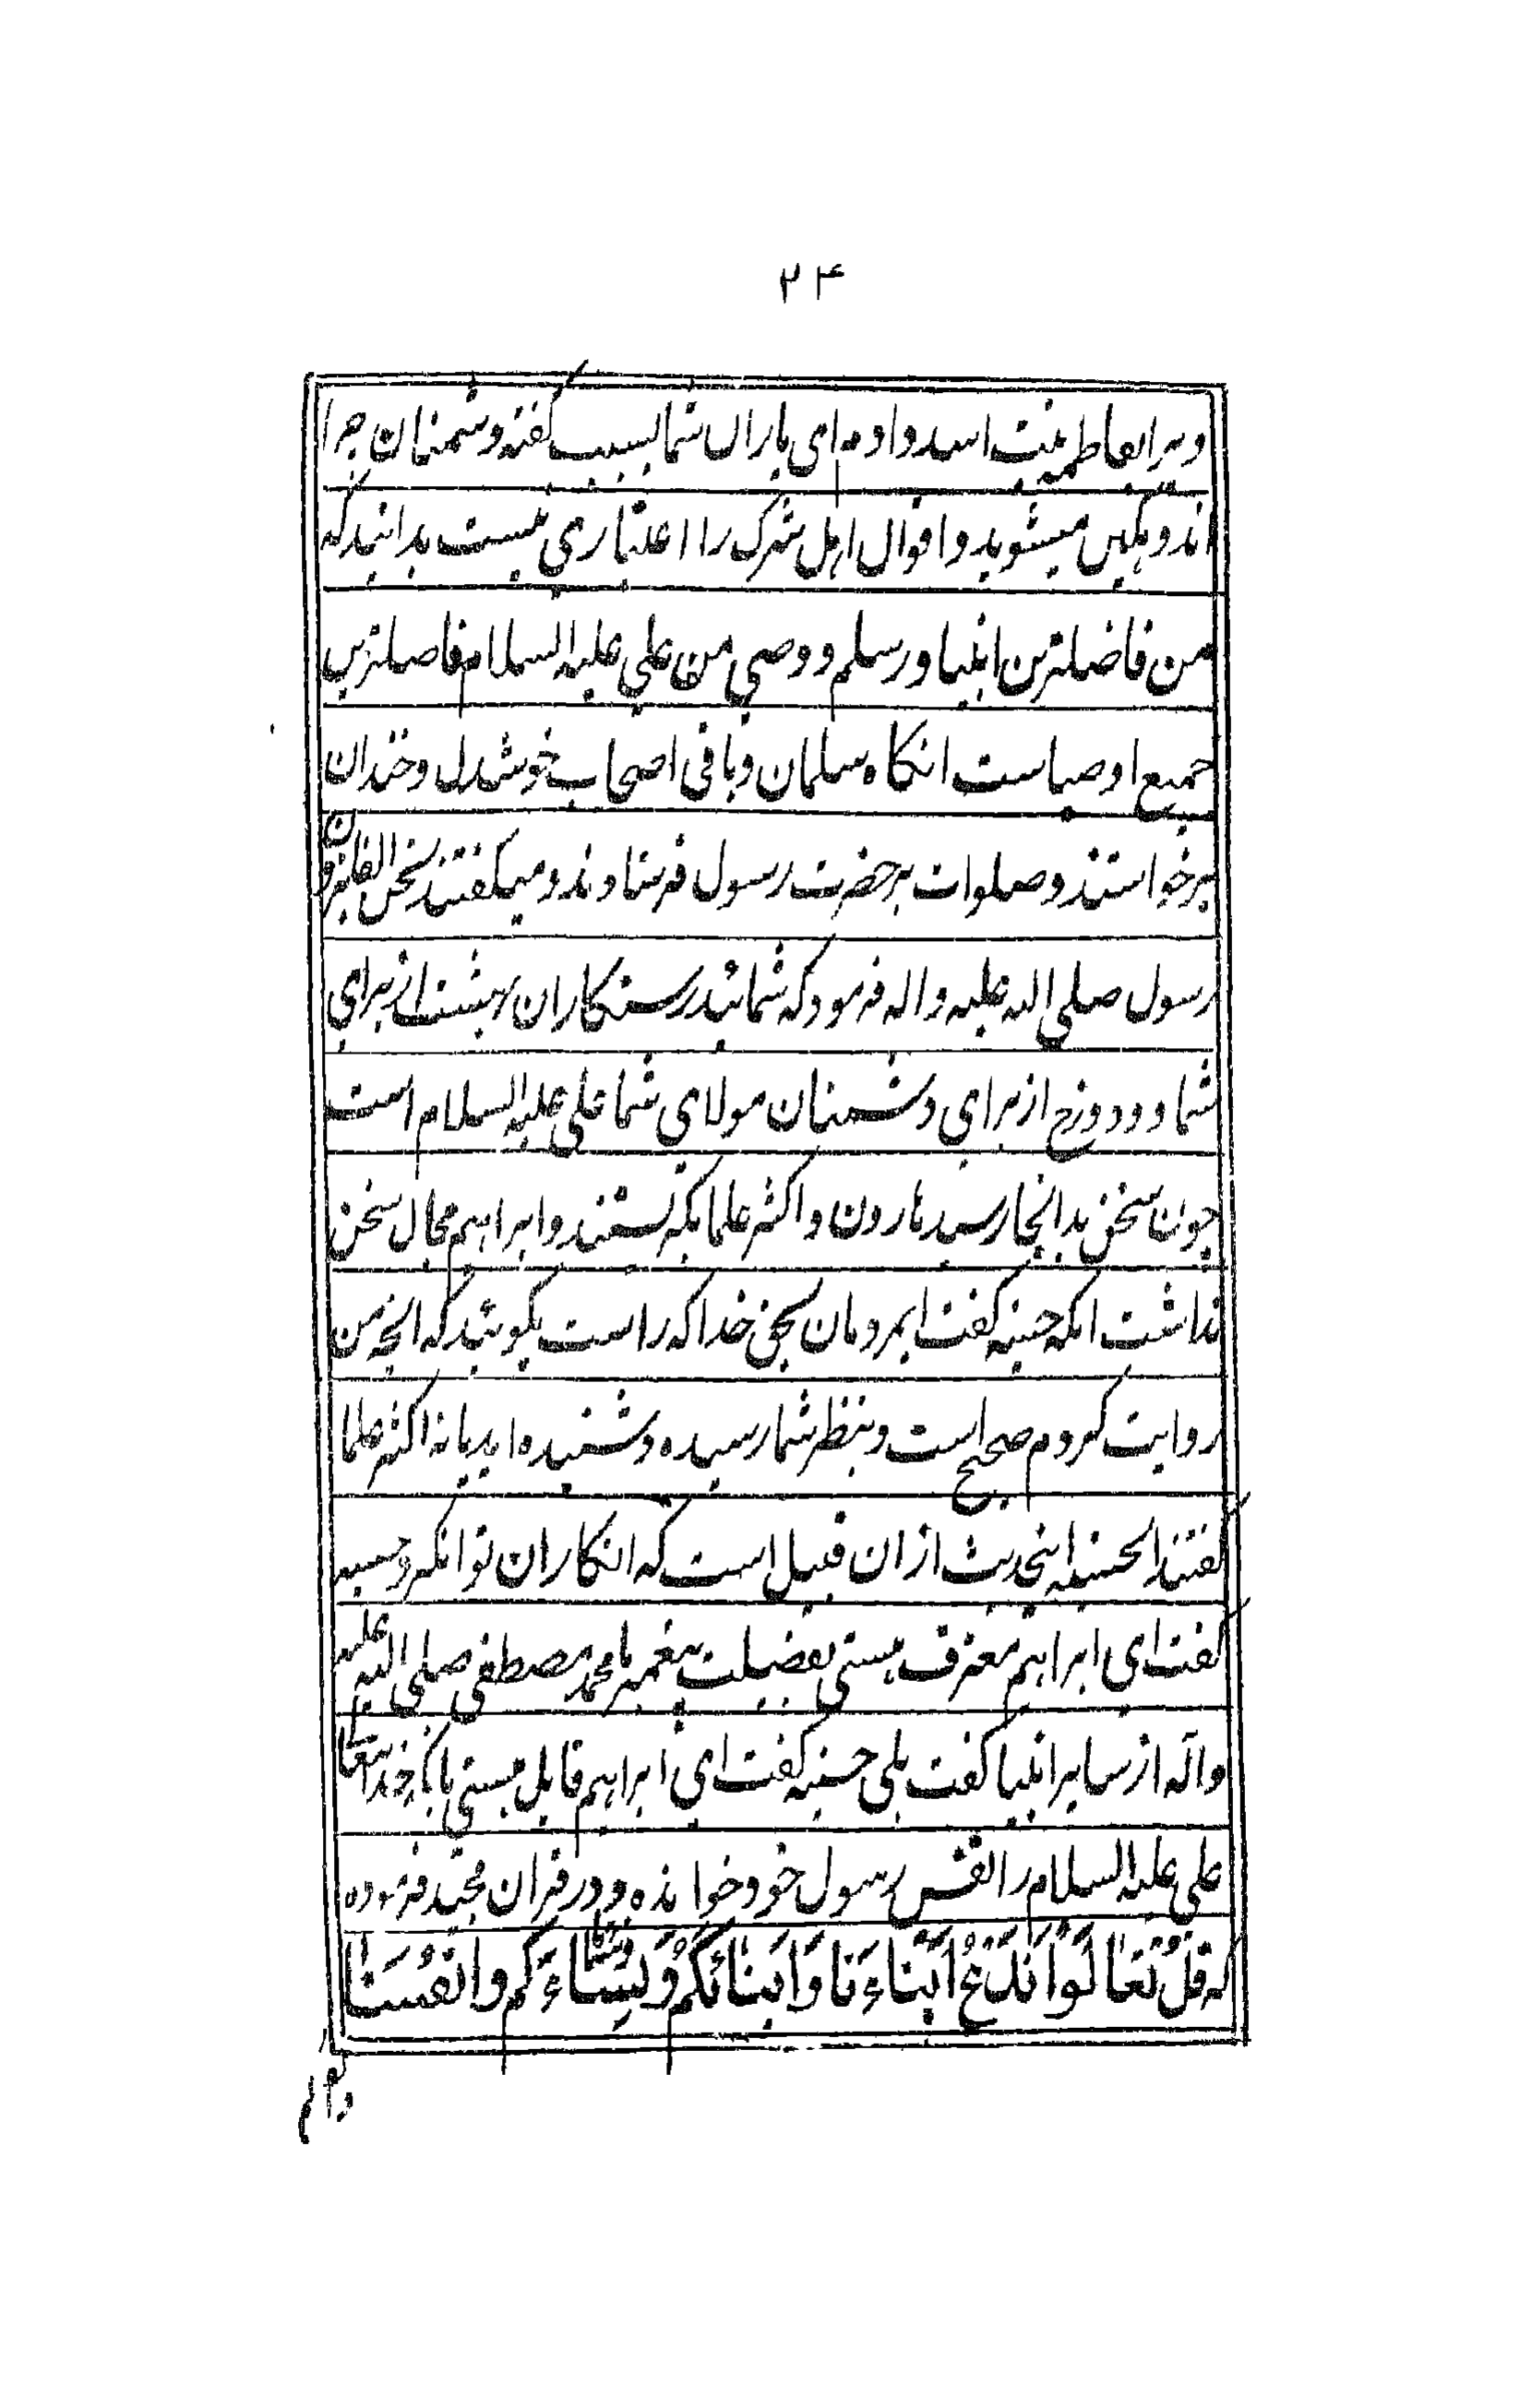 ۲۴
ویرا بفاطمه بنت اسد دادم ای یاران شما بسبب کفته دشمنان چرا
اندوهکین میشوید و اقوال اهل شرک را اعتباری نیست بدانید که
من فاضلترین انبیا و رسلم و وصی من علی علیه السلام فاضلترین
جمیع اوصیاست انکاه سلمان و باقی اصحاب خوشدل و خندان
برخواستند و صلوات بر حضرت رسول فرستادند و میکفتند نحن الفایزون
رسول صلی الله علیه و اله فرمود که شمائید رستکاران بهشت از برای
شما و دوزخ از برای دشمنان مولای شما علی علیه السلام است
چون سخن بدانجا رسید هارون و اکثر علما بکریستند و ابراهیم مجال سخن
نداشت انکه حسنیه کفت ایمردمان بحق خدا که راست بکوئید که انچه من
روایت کردم صحیح است و بنظر شما رسیده و شنیده اید یا نه اکثر علما
کفتند ایحسنیه اینحدیث از ان قبیل است که انکار ان توانکرد حسنیه
کفت ای ابراهیم معترف هستی بفضیلت پیغمبر ما محمد مصطفی صلی الله علیه
و آله از سایر انبیا کفت بلی حسنیه کفت ای ابراهیم قایل هستی باینکه خدایتعالی
علی علیه السلام را نفس رسول خود خوانده و در قران مجید فرموده
که قُلْ تَعَالَوْا نَدْعُ اَبْنَاءَنَا وَاَبْنَائَکُمْ وَنِسَاءَنَا وَنِسَاءَکُم وَانفُسَنَا